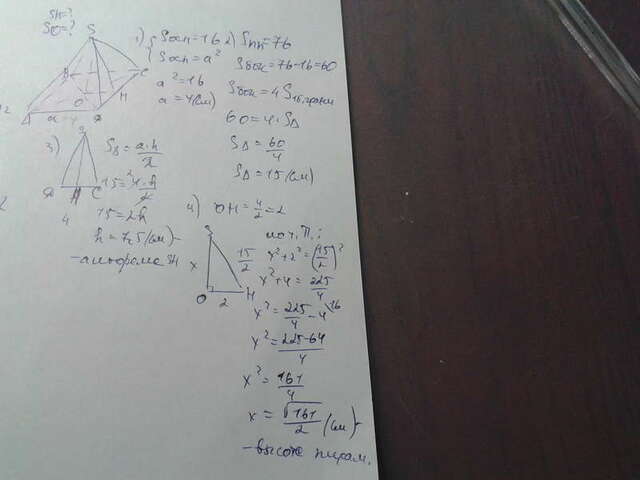 SH=?
SO=?
S
B
C
O
H
A
a=4
1) { Sосн=16
Sосн=a²
a²=16
a=4(см)
2) Sпп=76
Sбок=76-16=60
Sбок=4S1грани
60=4·SΔ
SΔ=60/4
SΔ=15(см)
3) S
H C
4
SΔ=a·h/2
15=4·h/2
15=2h
h=7,5(см)-
-апофема SH
4) OH=4/2=2
S
x
15/2
O 2 H
по т. П.:
x²+2²=(15/2)²
x²+4=225/4
x²=225/4-4\16
x²=225-64/4
x²=161/4
x=√161/2(см)-
-высота пирам.